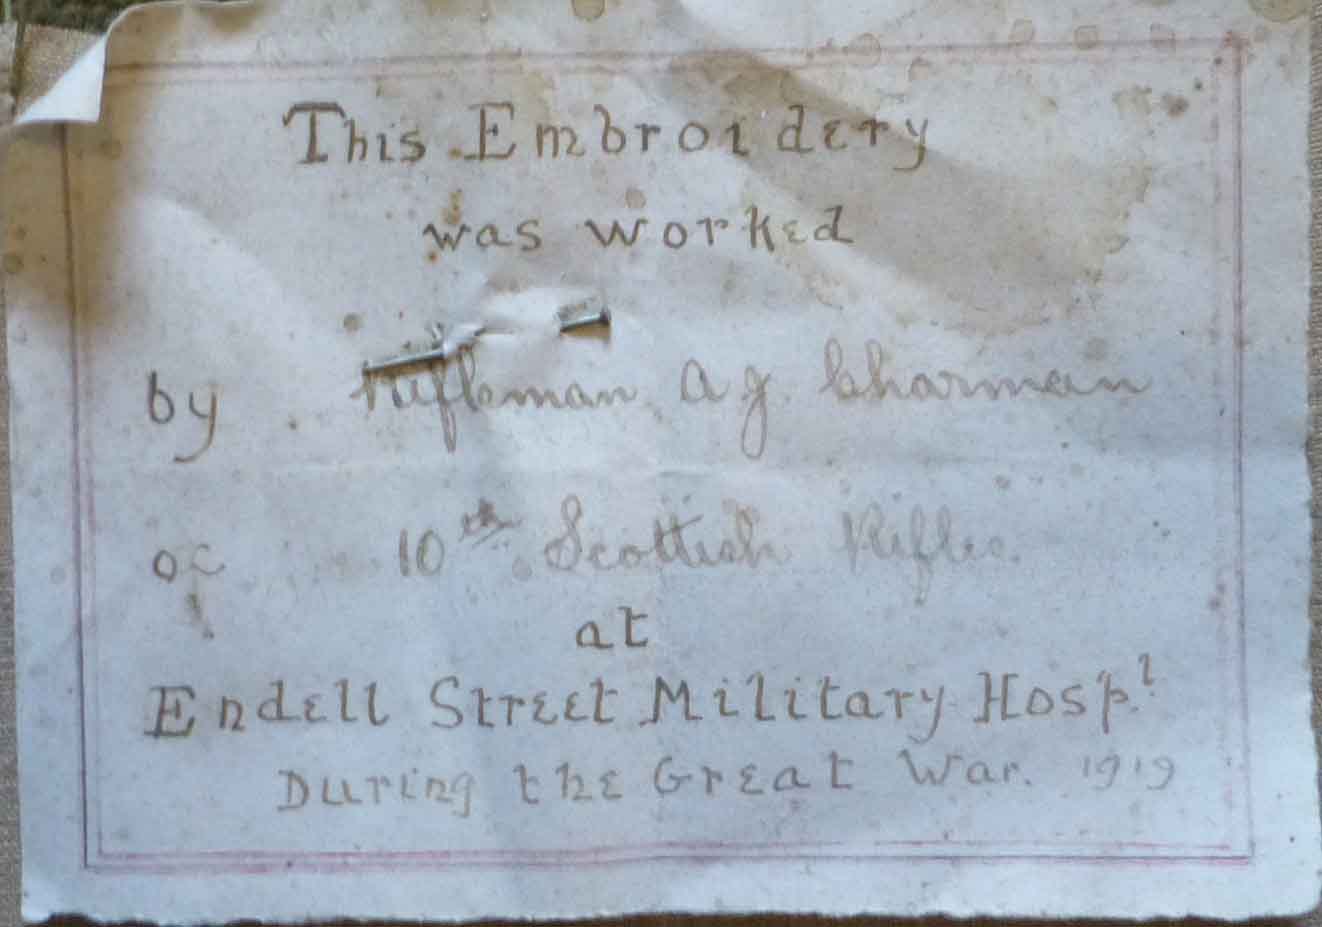 This Embroidery
was worked
by Rifleman A J Charman
of 10th Scottish Rifles.
at
Endell Street Military Hosp.l
During the Great War. 1919